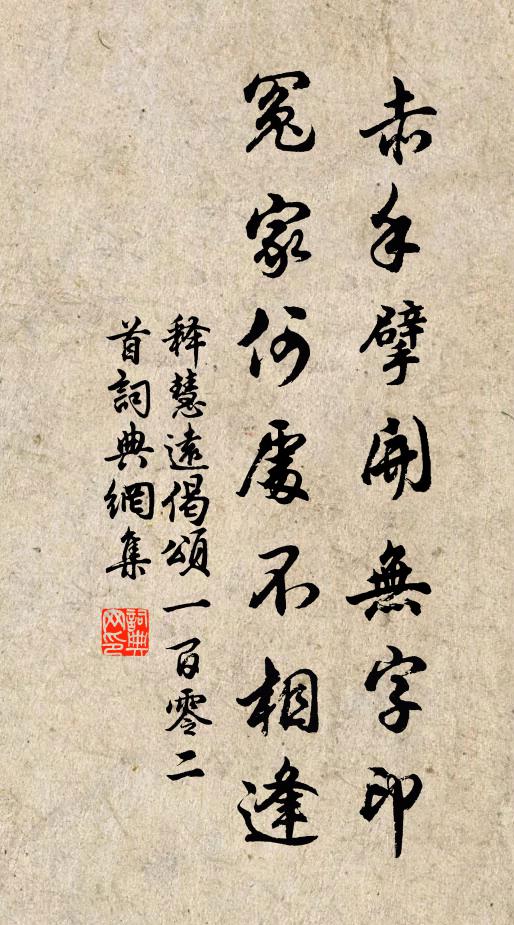 赤手擘開無字印
冤家何處不相逢
释慧遠偈頌一百零二
首詞典網集
詞典
网印